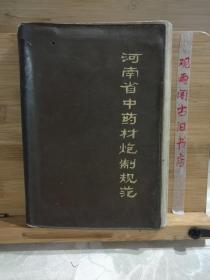 河南省中药材炮制规范
观典阁古旧书店